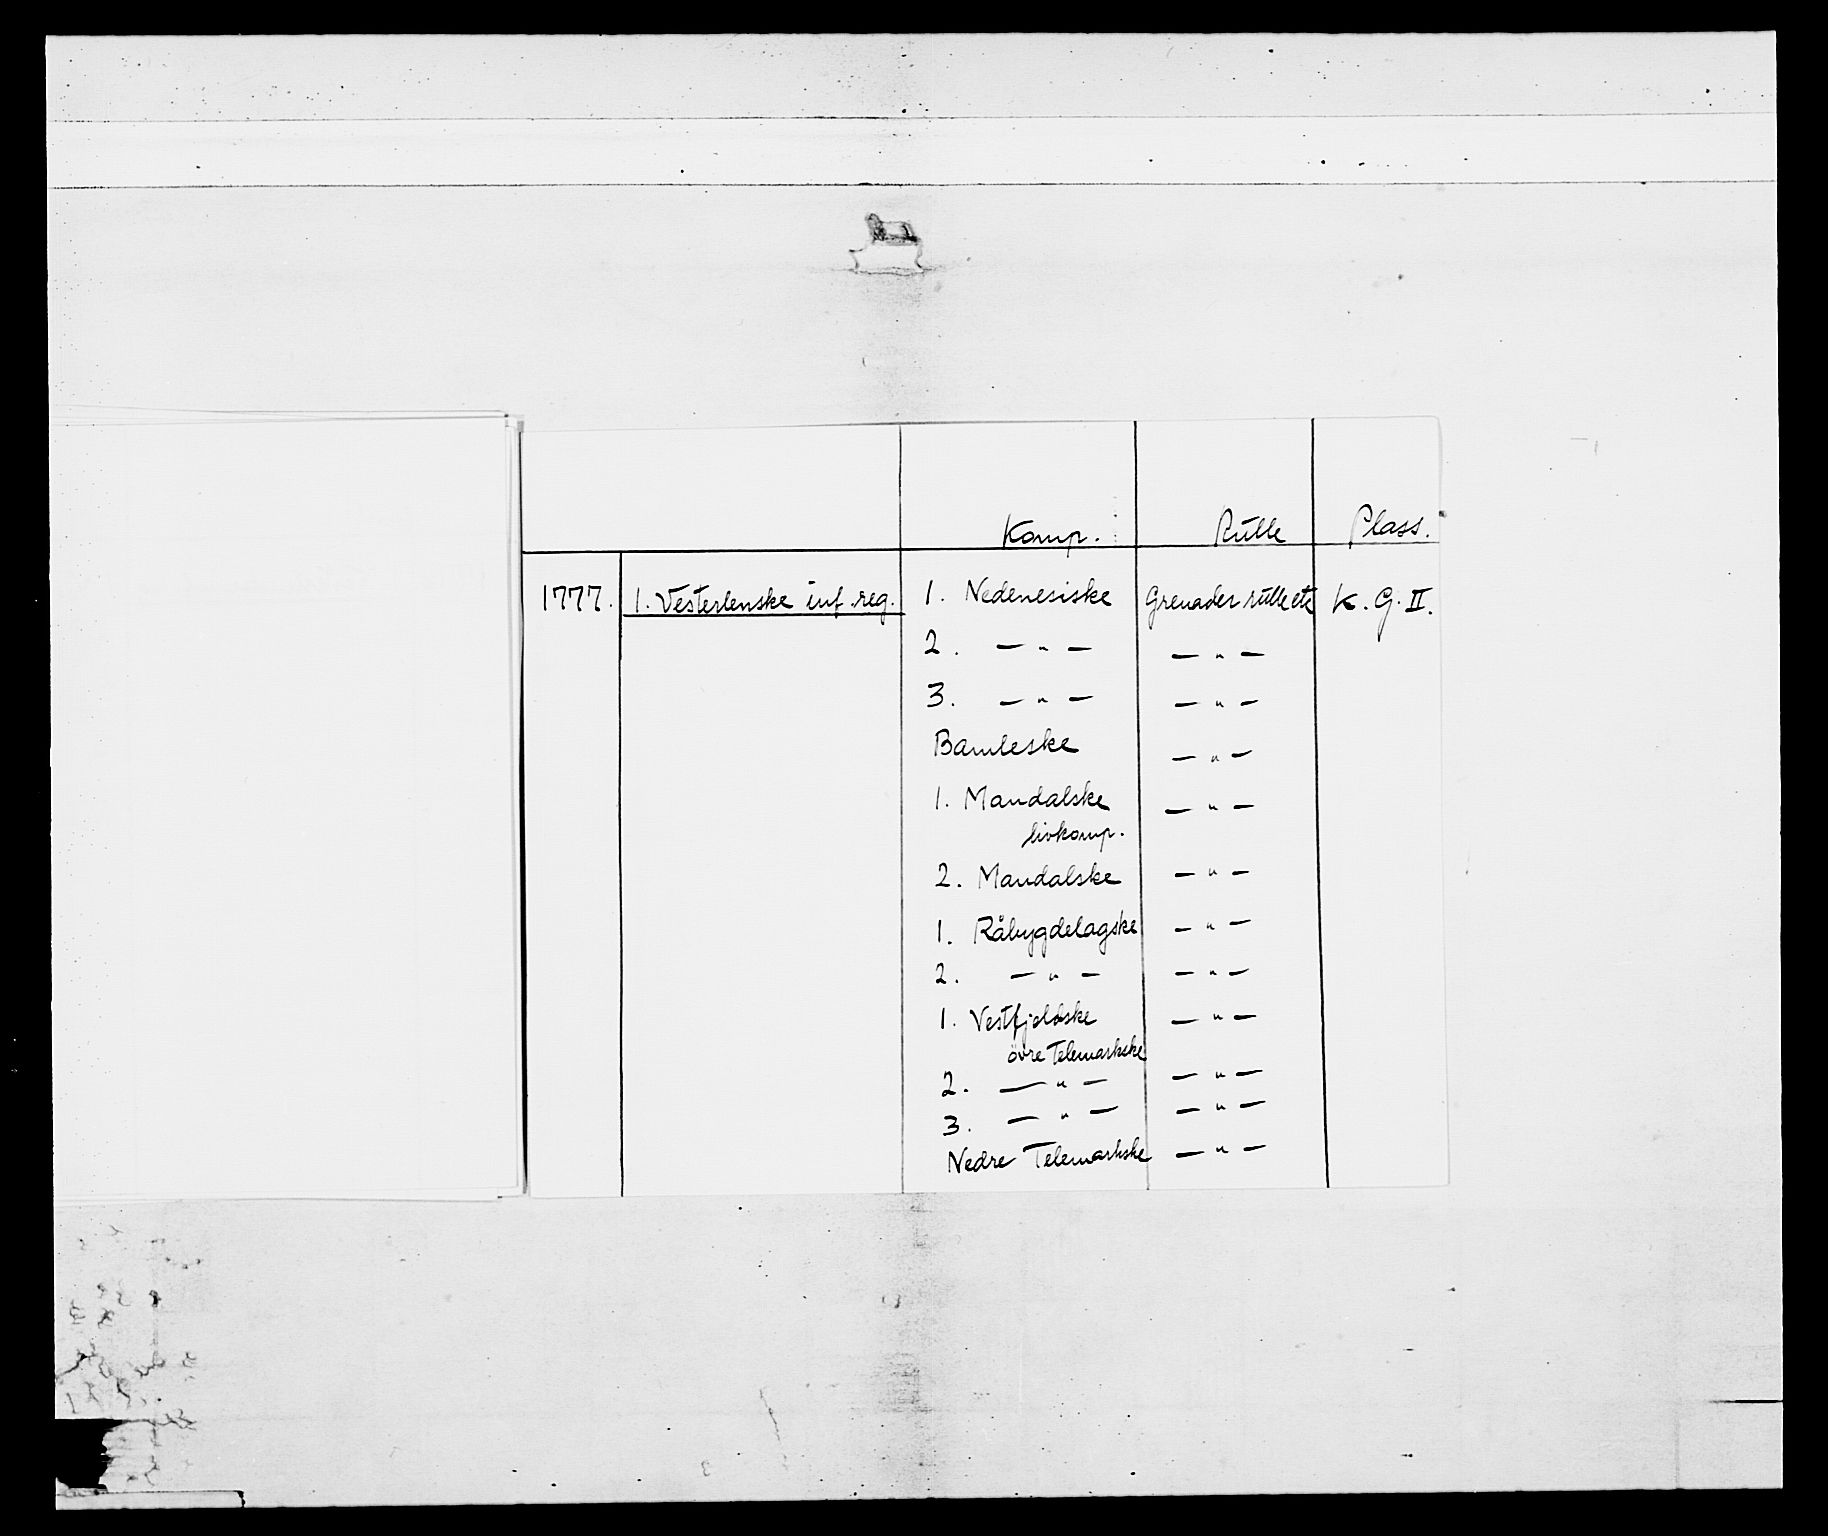 Komp. Rulle Plass.
1777. 1. Vesterlenske inf. reg. 1. Nedenesiske Grenader rulle etc K. G. II.
2. — " — — " —
3. — " — — " —
Bamleske — " —
1. Mandalske — " —
livkomp.
2. Mandalske — " —
1. Råbygdelagske — " —
2. — " — — " —
1. Vestfjeldske — " —
övre Telemarkske
2. — " — — " —
3. — " — — " —
Nedre Telemarkske — " —